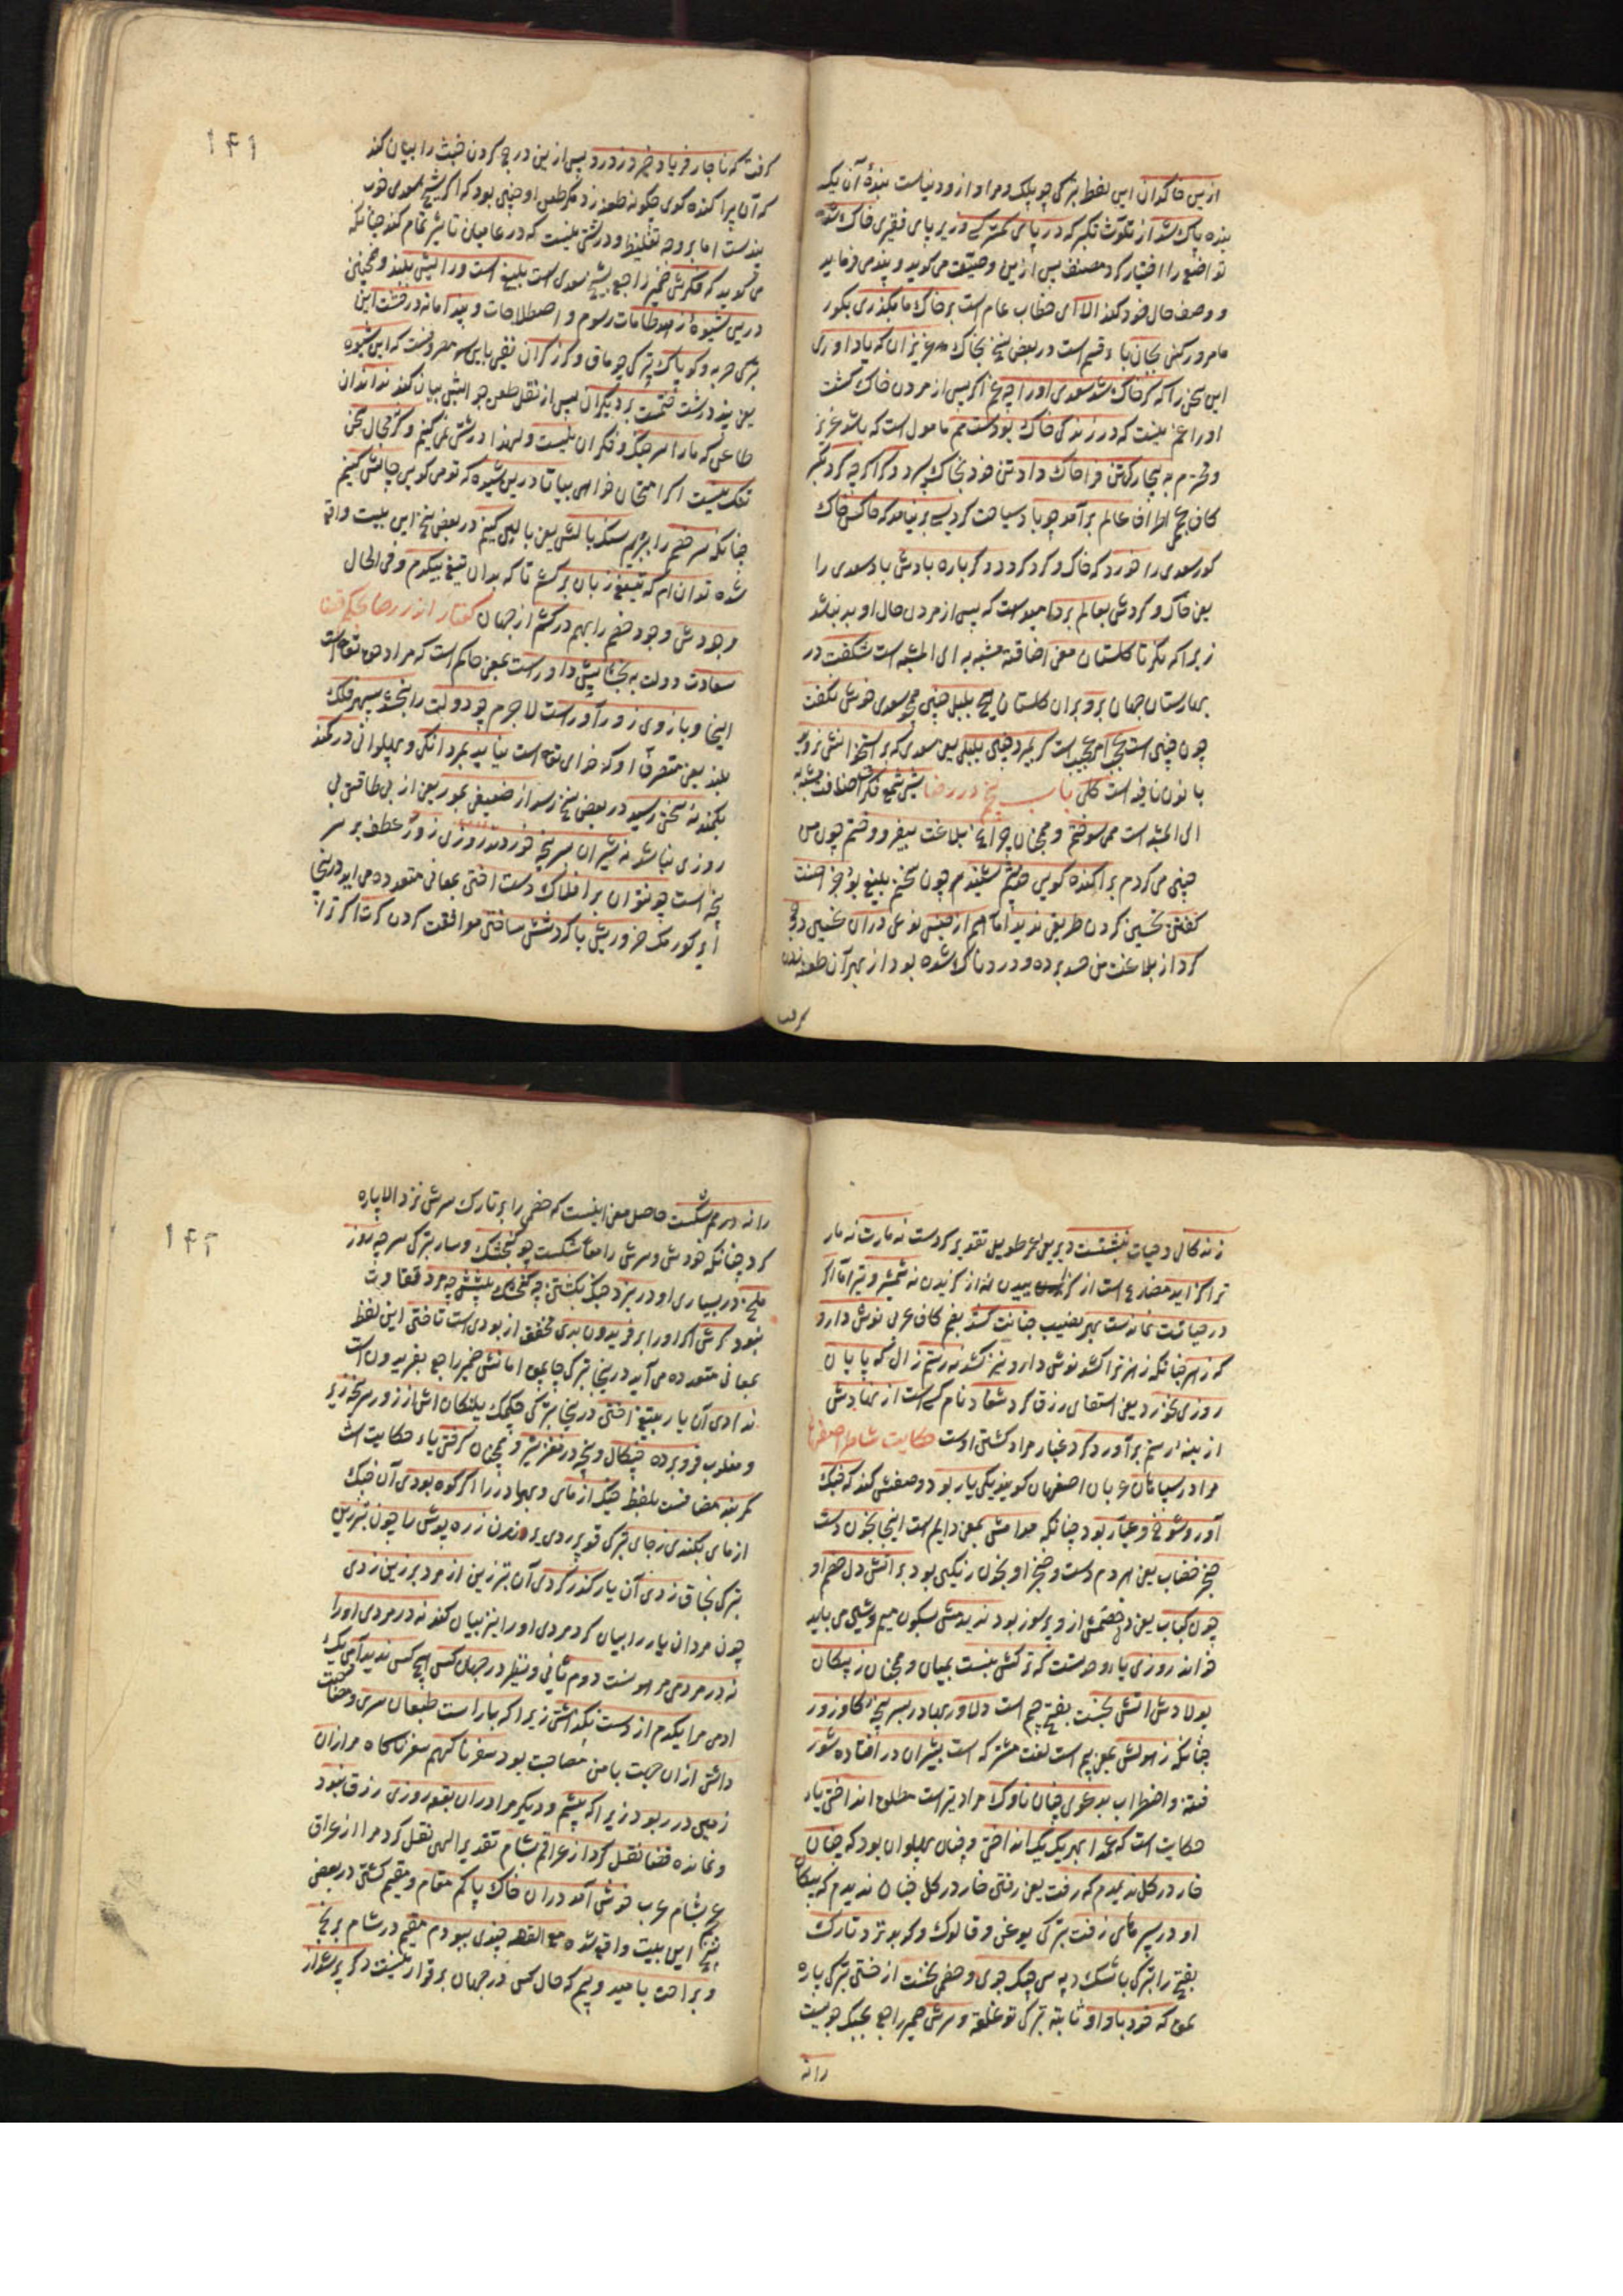 ازین خاکدان این لفظ بترکی چوپلک و مراد ازو دنیاست بندهٔ آن یک
بنده پاک شد از تلوث تکبر که در پای کمتر کسی در زیر پای فقیری خاک شد
تواضع را اختیار کرد مصنف پس ازین وصیت می کوید و پند می فرماید
و وصف حال خود کند الا ای خطاب عام است بر خاک ما بگذری بکور
ما مرور کنی بجان باء قسم است در بعض نسخ بخاک عزیزان که یاد اوری
این سخن را که کر خاک شد سعدی اورا چه غم اکر پس از مردن خاک کشت
اورا غم نیست که در زندکی خاک بودست هم مأمول است که باشد عزیز
و محترم به بیچارکی تن فرا خاک داد تن خود بخاک سپرد دکر اکر چه کرد تکبر
کاف عجمی اطراف عالم بر آمد چو باد سیاحت کرد بسی بر نیامد که خاکش خاک
کور سعدی را خورد که خاک و کرد کردد دکر باره بادش باد سعدی را
یعنی خاک و کردش بعالم برد امیدست که پس از مردن حال او بد نباشد
زیرا که مکر تا کلستان معنی اضافته مشبه به الی المشبه است شکفت در
بهارستان جهان برو بران کلستان هیچ بلبل چنین همچو سعدی خوش نکفت
چون چنین است عجب امر عجیب است کر بمیرد چنین بلبلی یعنی سعدی که بر استخوانش نروید
با نون نافیه است کلی باب پنجم در رضا شبی شمع فکرت اضافت مشبه به
الی المشبه است همی سوختم و همچنان چراغ بلاغت بیفروختم چون من
چنین می کردم پراکنده کویی حدیثم شنیدم چون سخنم بلیغ بود جز احسنت
کفتن تحسین کردن طریقی ندید اما هم از خبس نوعی دران تحسین درج
کرد از بلاغت من حسد برده و دردناک شده بود از بهر آن طعنه زدن
کرفت
۱۴۱
کرفت که ناچار فریاد خیزد ز درد پس ازین درج کردن خبث را بیان کند
که آن پراکنده کوی چکونه طعنه زد مکر طعن او چنین بود که اکر شیخ سعدی خوب
پندست اما بر وجه تغلیظ و درشتی نیست که در عامیان تأثیر تمام کند چنانکه
می کوید که فکرش ضمیر راجع بشیخ سعدی است بلیغ است ورایش بلند و همچنین
درین شیوهٔ زهد و طامات رسوم و اصطلاحات و پند اما نه در خشت این
بترکی حربه و کوپاک بترکی چوماق و کرز کران نفی بایی مصروفست که این شیوه
یعنی پند درشت ختمست بر دیکران پس از نقل طعن جوابش بیان کند نداند ان
طاعن که مارا سر جنک و فکر آن نیست ولهذا درشتی نمی کنیم و کرنه مجال سخن
تنک نیست اکر امتحان خواهی بیا تا درین شیوه که تو می کویی چالش کنیم
چنانکه سر خصم را بزنیم سنک بالش یعنی بالین کنیم در بعض نسخ این بیت واقع
شده توانم که تیغ زبان بر کشم تا که بدان قیغ بیکدم و فی الحال
وجودش وجود خصم را بهم در کشم از جهان کفتار اندر رضا بحکم قضا
سعادت دولت به بخشایش داورست بمعنی حاکم است که مراد حق تعالی است
اینجا و بازوی زورآورست لاجرم چو دولت را نبخشد سپهر فلک
بلند یعنی متصرف او که خدای تعالی است نیاید بمردانکی و پهلوانی در کمند
بکمند نه سختی رسید در بعض نسخ رسد از ضعیفی بمور یعنی از بی طاقتی بی
روزی نباشد نه شیران سرپنجه خوردند روزی زور عطف بر سر
پنجه است چو نتوان بر افلاک دست اختن بمعانی متعدده می اید درینجا
ضروریست با کردشش ساختن موافقت کردن کرت اکر ترا
زندکانی و حیات نبشتست دیر یعنی عمر طویل تقدیر کردست نه مارت نه مار
ترا کزاید مضارع است از کزاییدن نه از کزیدن نه شمشیر و تیر اما اکر
در حیاتت نماندست بهر نصیب چنانت کشد بضم کاف عربی نوش دارو
که زهر چنانکه زهر ترا کشد نوش دارو نیز کشد نه رستم زال که پایان
روزی بخورد یعنی استفای رزق کرد شغاد نام کسی است از نهادش
از بنیه رستم بر آورد کرد غبار مراد کشتن اوست حکایت شاطر اصفهان
مرا در سپاهان عربان اصفهان کویند یکی یار بود وصفش کند که جنک
آور و شوخ و عیار بود چنانکه مدامش بمعنی دایم است اینجا بخون دست
و خنجر خضاب یعنی هر دم دست و خنجر او بخون رنکین بود بر آتش دل خصم او
چون کباب یعنی دل خصمش ازو پر سوز بود ندیدمش بسکون میم و شین می باید
خواند روزی یاء وحدتست که ترکش نبست بمیان و همچنان ز پیکان
پولادش آتش نجست بفتح جیم است دلاور بهادر بسر پنجهٔ کاو زور
چنانکه ز هولش بمعنی بیم است لغت مشترکه است بشیران در افتاده شور
فتنه و اضطراب بدعوی چنان ناوک مراد تیر است مطلوب انداختن یاء
حکایت است که عدو را بهر یک یک انداختی و چنان پهلوان بود که چنان
خار در کل ندیدم که رفت یعنی رفتن خار در کل چنان ندیدم که پیکان
او در سپرهای زفت بترکی یوغن و قالوک و کوبد نزد تارک
بفتح را بترکی باشک دپه سی جنک جوی و خصمی بخست از خستن بترکی یاره
بمق که خود با واو ثابته بترکی توغلغه و سرش ضمیر راجع بجنک جویست
را نه
۱۴۲
را نه در هم شکست حاصل معنی اینست که خصمی را بر تارک سرش نزد الا پاره
کرد چنانکه خودش و سرش را معا شکست چو کنجشک و سار بترکی سرچه روز
ملخ در بسیاری او در نبرد جنک بکشتن چه کنجشک پیشش چه مرد تفاوت
نبود کرش اکر اورا بر فریدون بدی مخفف از بودی است تاختن این لفظ
بمعانی متعدده می آید درینجا بترکی چاپمق امانش ضمیر راجع بفریدون است
ندادی آن یار بتیغ اختن درینجا بترکی چکمک پلنکانش از زور سرپنجه زیر
و مغلوب فرو برده چنکال و پنجه در مغز شیر و همچنان کرفتی یاء حکایت است
کمربند مضافست بلفظ جنک ازمای و بهادر را اکر کوه بودی آن جنک
ازمای بکندی ز جای بترکی قوپرردی یرندن زره پوش را چون تبرزین
بترکی نجاق زدی آن یار کذر کردی آن تبرزین از مرد بر زین زدی
چون مردان یار را بیان کرد مردی اورا نیز بیان کند نه در مردی اورا
نه در مردمی مروتست دوم ثانی و نظیر در جهان کسی هیچ کس ندید آدمی یک
ادمی مرا یکدم از دست نکذاشتی زیرا که با راست طبعان سری ومحبت
داشتی ازان جهت با من مصاحب بود سفر ناکهم سفر ناکاه مرا زان
زمین در ربود زیرا که بیشم و دیکر مرا دران بقعه روزی رزق نبود
و نمانده قضا نقل کرد از عراقم بشام تقدیر الهی نقل کرد مرا از عراق
عجم بشام عرب خوش آمد دران خاک پاکم مقام و مقیم کشتم در بعض
نسخ این بیت واقع شده مع القصه چندی ببودم مقیم در شام برنج
و براحت بامید و بیم که حال کس در جهان بر قرار نیست دکر پر شد از